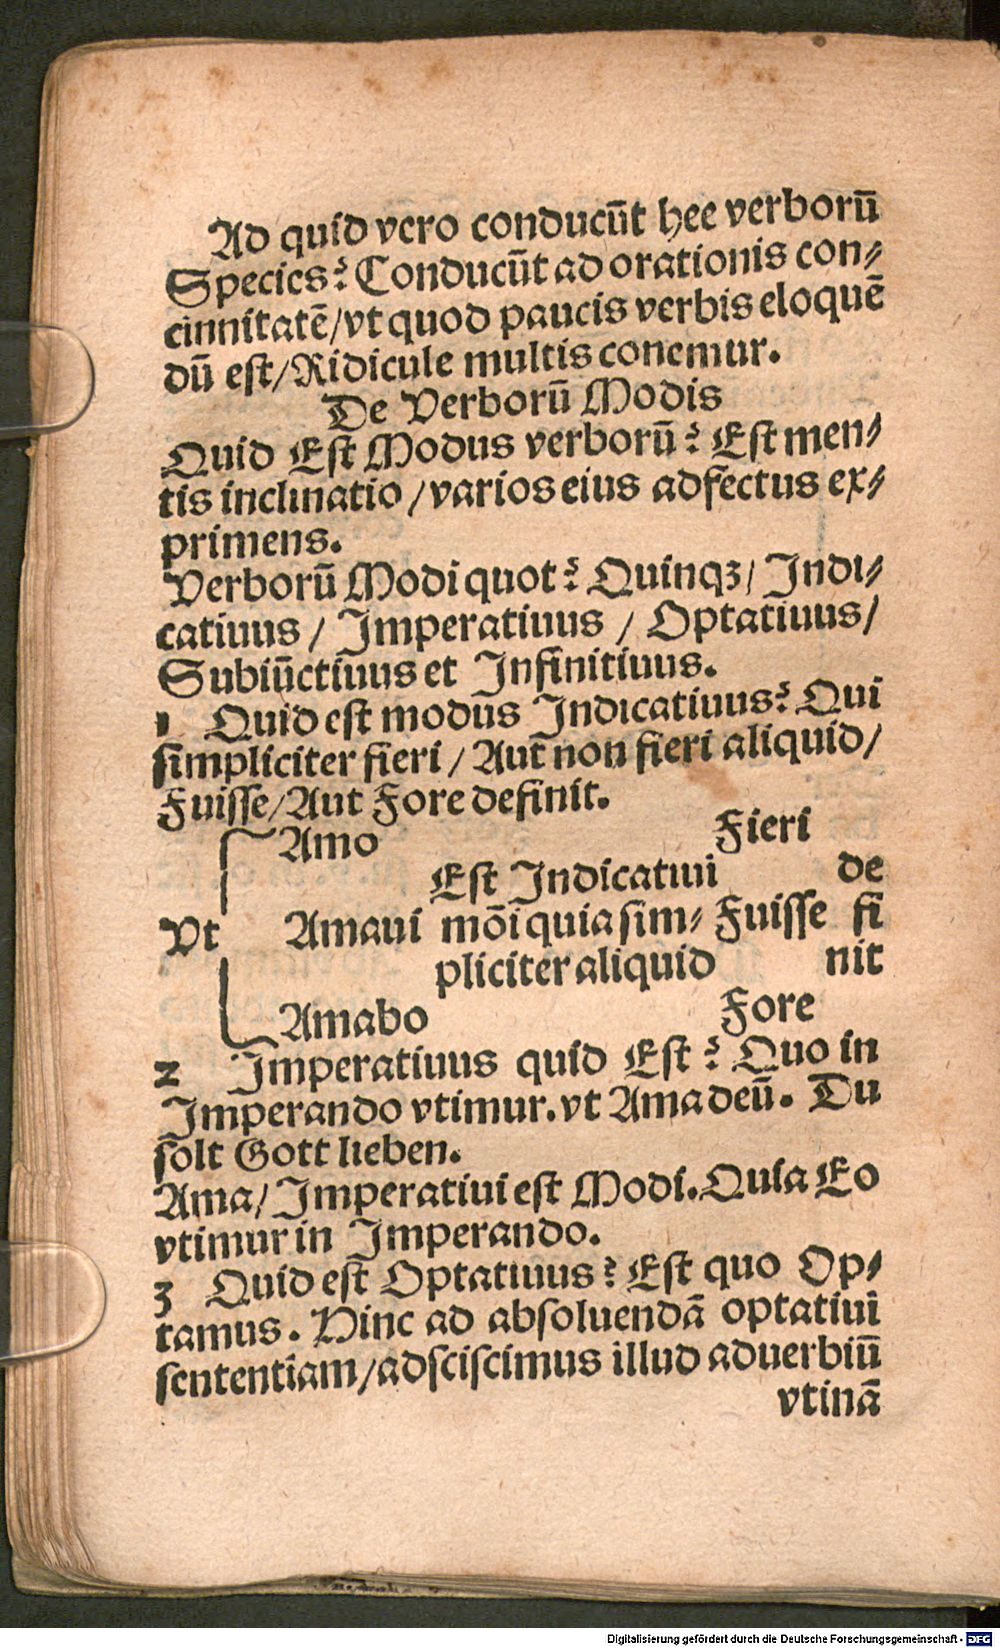 Ad quid vero conducūt hee verborū
Species? Conducūt ad orationis con-
cinnitatē/vt quod paucis verbis eloquē
dū est/Ridicule multis conemur.
De Verborū Modis
Quid Est Modus verborū? Est men-
tis inclinatio/varios eius adfectus ex-
primens.
Verborū Modi quot? Quinqꝫ/Indi-
catiuus/Imperatiuus/Optatiuus/
Subiūctiuus et Infinitiuus.
1 Quid est modus Indicatiuus? Qui
simpliciter fieri/Aut non fieri aliquid/
Fuisse/Aut Fore definit.
Amo Fieri
Est Indicatiui de
Vt Amaui mōi quia sim- Fuisse fi
pliciter aliquid nit
Amabo Fore
2 Imperatiuus quid Est? Quo in
Imperando vtimur. vt Ama deū. Du
solt Gott lieben.
Ama/Imperatiui est Modi. Quia Eo
vtimur in Imperando.
3 Quid est Optatiuus? Est quo Op-
tamus. Hinc ad absoluendā optatiui
sententiam/adsciscimus illud aduerbiū
vtinā
Digitalisierung gefördert durch die Deutsche Forschungsgemeinschaft - DFG